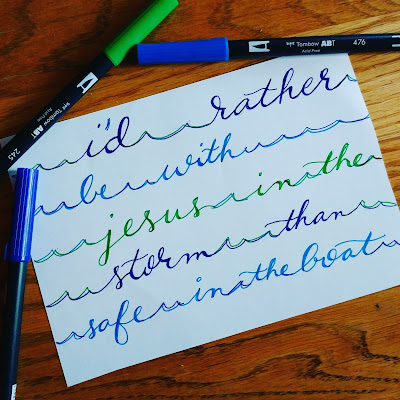 Tombow ABT 476
Acid-Free
Tombow ABT
Acid-Free
245
i'd rather
be with
jesus in the
storm than
safe in the boat